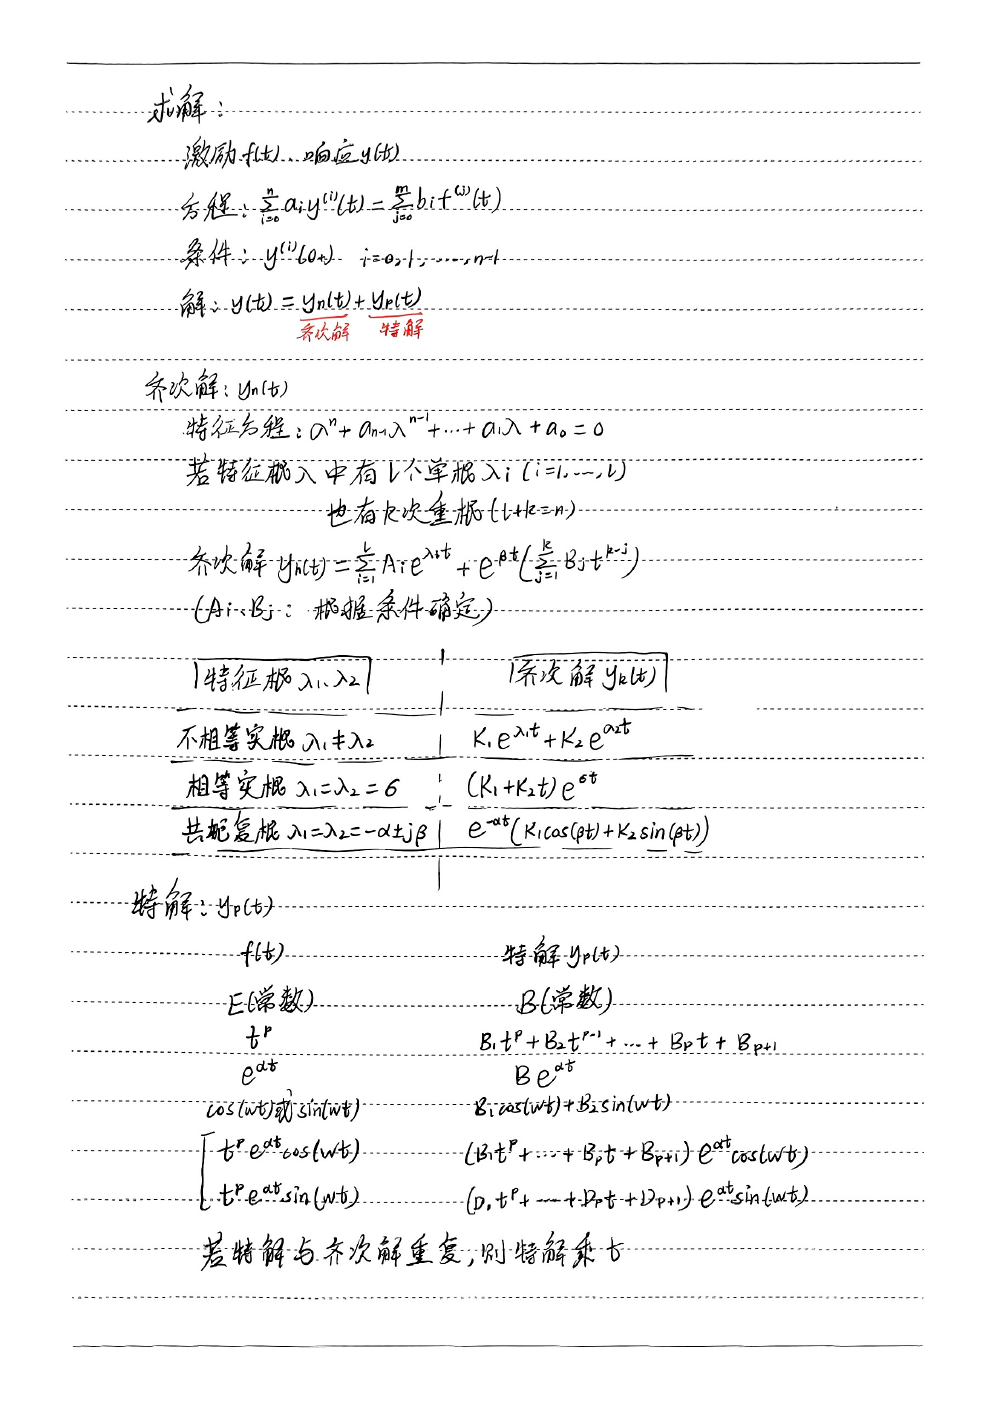 求解：
激励f(t)、响应y(t)
方程：∑_{i=0}^{n} aᵢy⁽ⁱ⁾(t)=∑_{j=0}^{m} bᵢf⁽ʲ⁾(t)
条件：y⁽ⁱ⁾(0₊) i=0,1,……,n-1
解：y(t)=yₕ(t)+yₚ(t)
齐次解 特解
齐次解：yₕ(t)
特征方程：λⁿ+aₙ₋₁λⁿ⁻¹+…+a₁λ+a₀=0
若特征根λ中有l个单根λᵢ(i=1,…,l)
也有k次重根(l+k=n)
齐次解yₕ(t)=∑_{i=1}^{l} Aᵢe^{λᵢt}+e^{βt}(∑_{j=1}^{k} Bⱼt^{k-j})
(Aᵢ、Bⱼ：根据条件确定)
特征根λ₁、λ₂ 齐次解yₕ(t)
不相等实根λ₁≠λ₂ K₁e^{λ₁t}+K₂e^{λ₂t}
相等实根λ₁=λ₂=6 (K₁+K₂t)e^{6t}
共轭复根λ₁=λ₂=-α±jβ e^{-αt}(K₁cos(βt)+K₂sin(βt))
特解：yₚ(t)
f(t) 特解yₚ(t)
E(常数) B(常数)
t^p B₁t^p+B₂t^{p-1}+…+Bₚt+Bₚ₊₁
e^{αt} Be^{αt}
cos(wt)或sin(wt) B₁cos(wt)+B₂sin(wt)
t^p e^{αt}cos(wt) (B₁t^p+…+Bₚt+Bₚ₊₁)e^{αt}cos(wt)
t^p e^{αt}sin(wt) (D₁t^p+…+Dₚt+Dₚ₊₁)e^{αt}sin(wt)
若特解与齐次解重复,则特解乘t